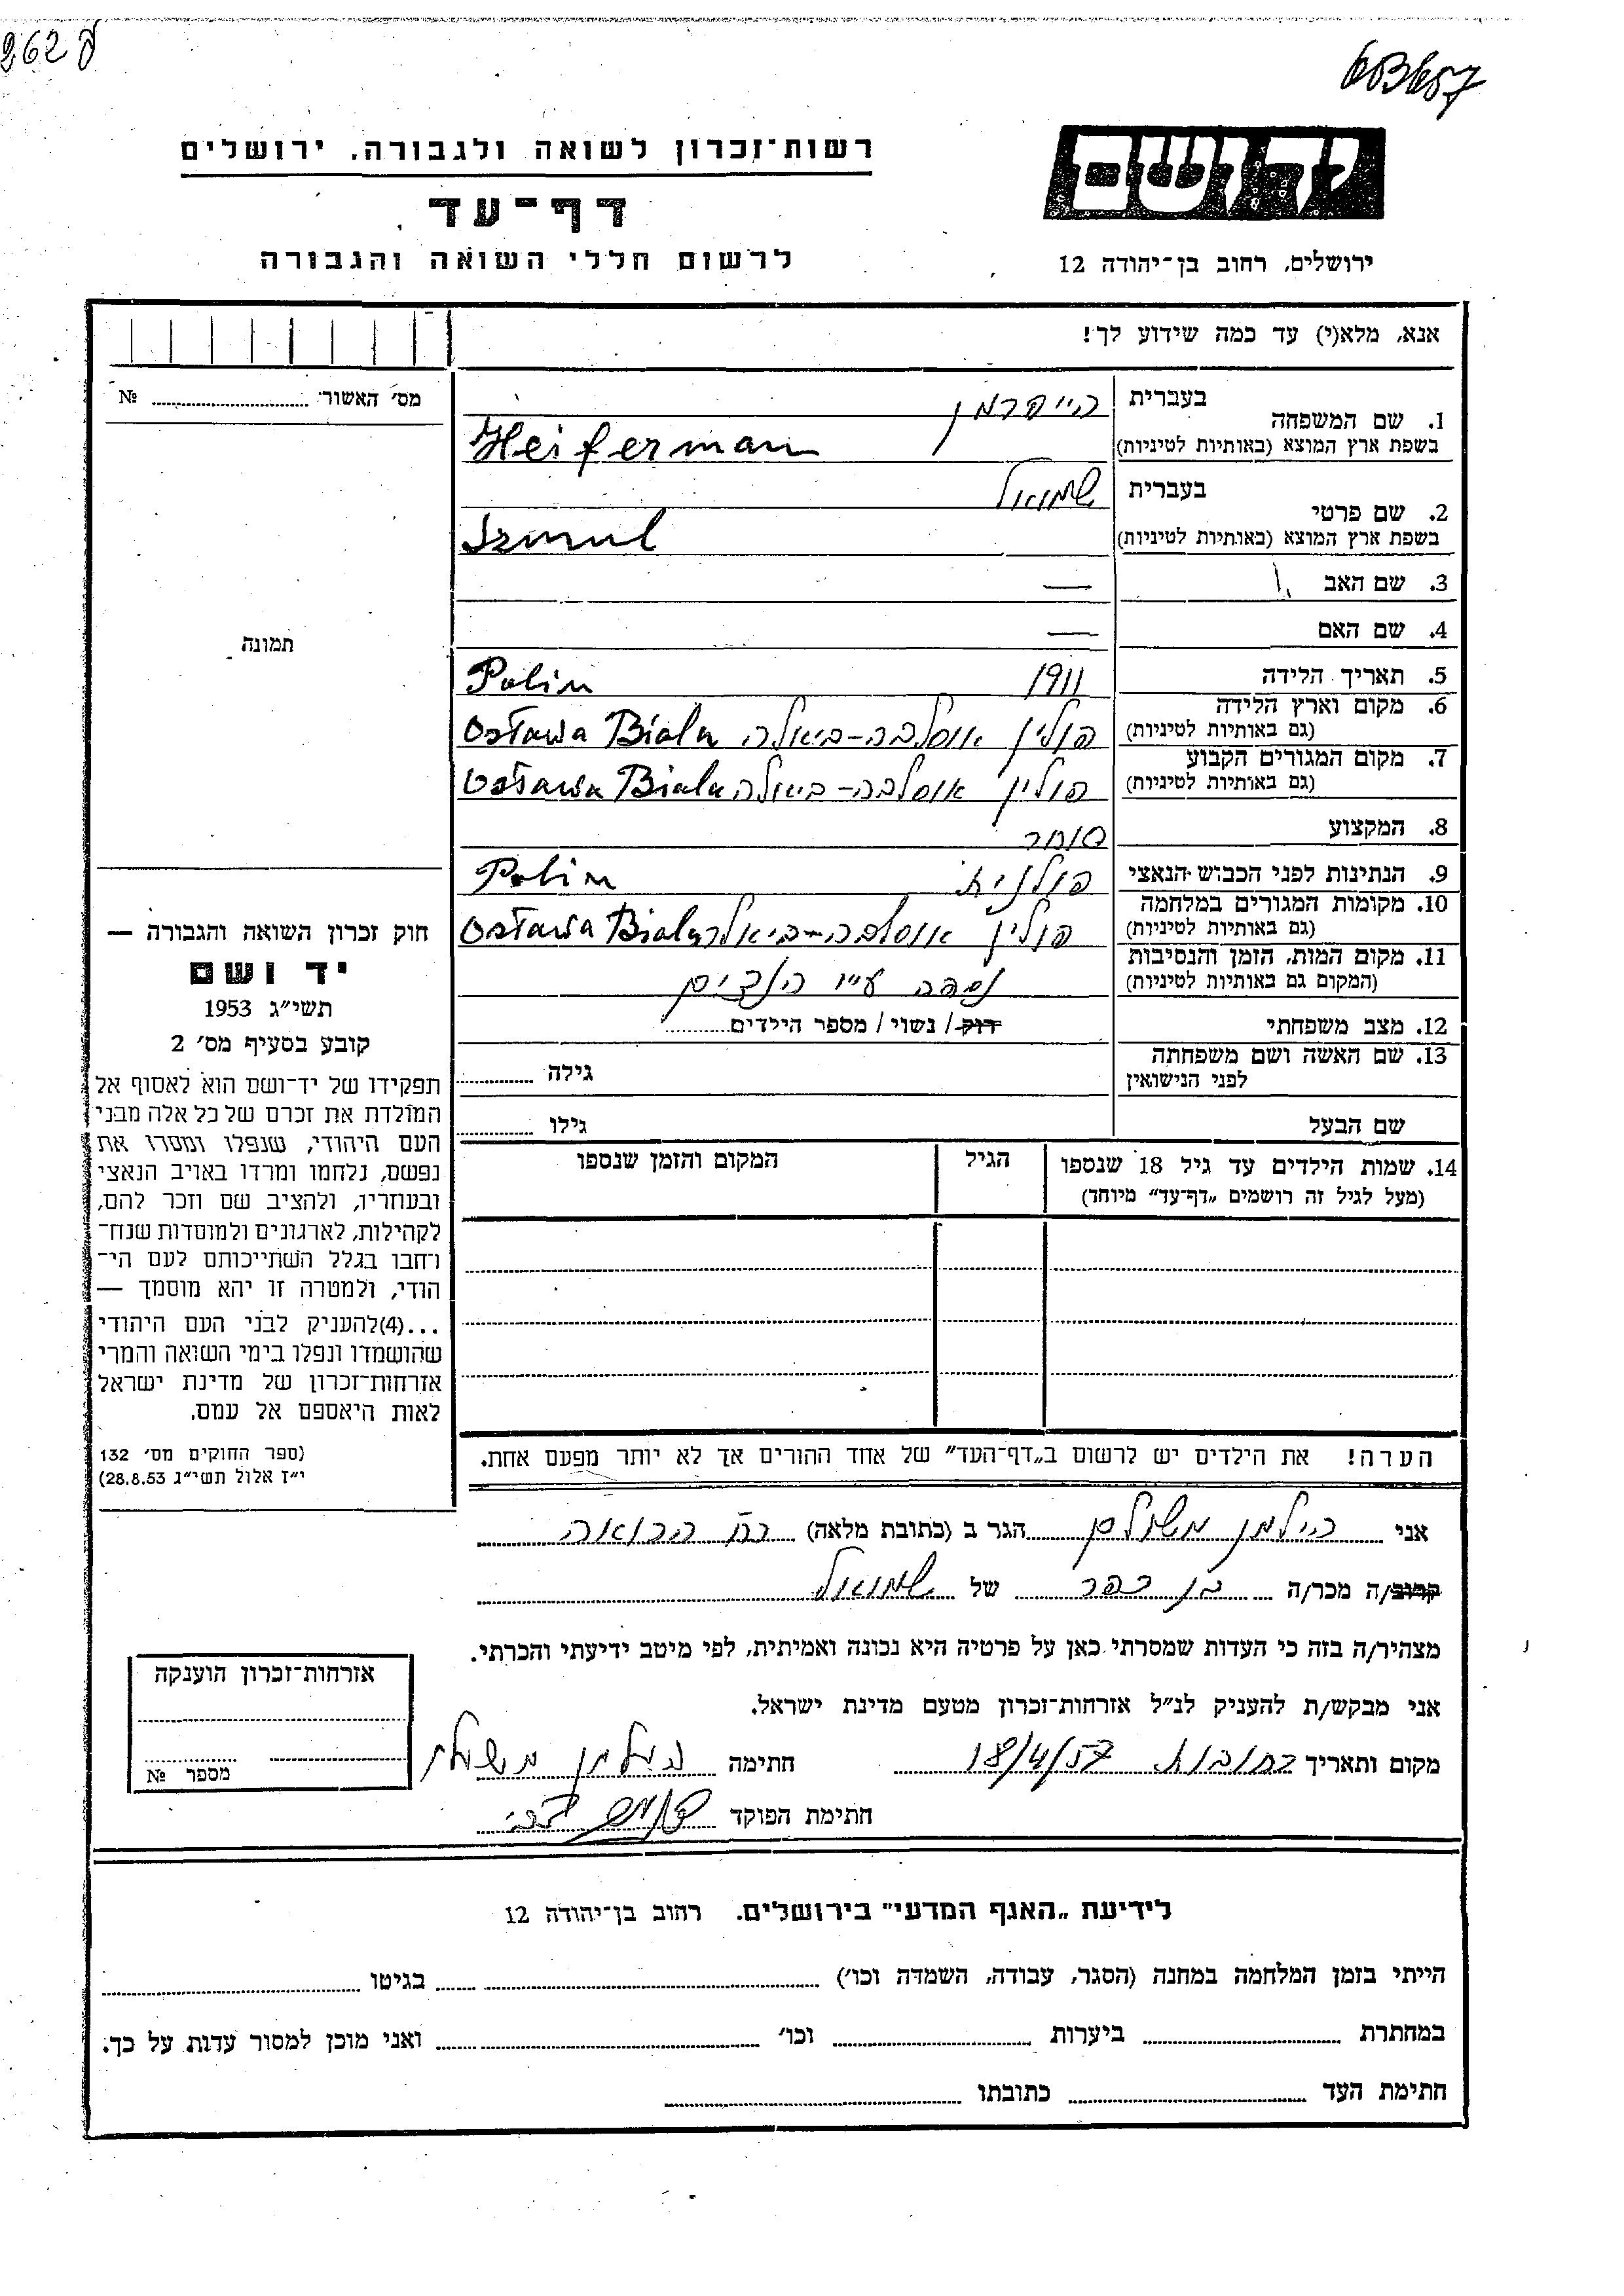 262 ק
רשות־זכרון לשואה ולגבורה. ירושלים
דף־עד
לרשום חללי השואה והגבורה
יד ושם
ירושלים, רחוב בן־יהודה 12
אנא, מלא(י) עד כמה שידוע לך!
מס׳ האשור № 
1. שם המשפחה בעברית הייפרמן
בשפת ארץ המוצא (באותיות לטיניות) Heiferman
2. שם פרטי בעברית שמואל
בשפת ארץ המוצא (באותיות לטיניות) Szmul
3. שם האב —
4. שם האם —
5. תאריך הלידה 1911 Polin
6. מקום וארץ הלידה (גם באותיות לטיניות) פולין אוסלבה-ביאלה Ostawa Biala
7. מקום המגורים הקבוע (גם באותיות לטיניות) פולין אוסלבה-ביאלה Ostawa Biala
8. המקצוע סוחר
9. הנתינות לפני הכבוש הנאצי פולנית Polin
10. מקומות המגורים במלחמה (גם באותיות לטיניות) פולין אוסלבה-ביאלה Ostawa Biala
11. מקום המות, הזמן והנסיבות (המקום גם באותיות לטיניות) נספה ע״י הנצים
12. מצב משפחתי רוק / נשוי / מספר הילדים
13. שם האשה ושם משפחתה לפני הנישואין גילה
שם הבעל גילו
14. שמות הילדים עד גיל 18 שנספו הגיל המקום והזמן שנספו
(מעל לגיל זה רושמים „דף־עד״ מיוחד)
תמונה
חוק זכרון השואה והגבורה —
יד ושם
תשי״ג 1953
קובע בסעיף מס׳ 2
תפקידו של יד־ושם הוא לאסוף אל
המולדת את זכרם של כל אלה מבני
העם היהודי, שנפלו ומסרו את
נפשם, נלחמו ומרדו באויב הנאצי
ובעוזריו, ולהציב שם וזכר להם,
לקהילות, לארגונים ולמוסדות שנח־
רחבו בגלל השתייכותם לעם הי־
הודי, ולמטרה זו יהא מוסמך —
...(4)להעניק לבני העם היהודי
שהושמדו ונפלו בימי השואה והמרי
אזרחות־זכרון של מדינת ישראל
לאות היאספם אל עמם.
(ספר החוקים מס׳ 132
י״ז אלול תשי״ג 28.8.53)
הערה! את הילדים יש לרשום ב„דף־העד״ של אחד ההורים אך לא יותר מפעם אחת.
אני הילמן משולם הגר ב (כתובת מלאה)
קרוב/ה מכר/ה בן כפר של שמואל
מצהיר/ה בזה כי העדות שמסרתי כאן על פרטיה היא נכונה ואמיתית, לפי מיטב ידיעתי והכרתי.
אני מבקש/ת להעניק לנ״ל אזרחות־זכרון מטעם מדינת ישראל.
מקום ותאריך רחובות 18/4/57 חתימה הילמן משולם
חתימת הפוקד
אזרחות־זכרון הוענקה
מספר №
לידיעת „האגף המדעי״ בירושלים. רחוב בן־יהודה 12
הייתי בזמן המלחמה במחנה (הסגר, עבודה, השמדה וכו׳) בגיטו
במחתרת ביערות וכו׳ ואני מוכן למסור עדות על כך.
חתימת העד כתובתו